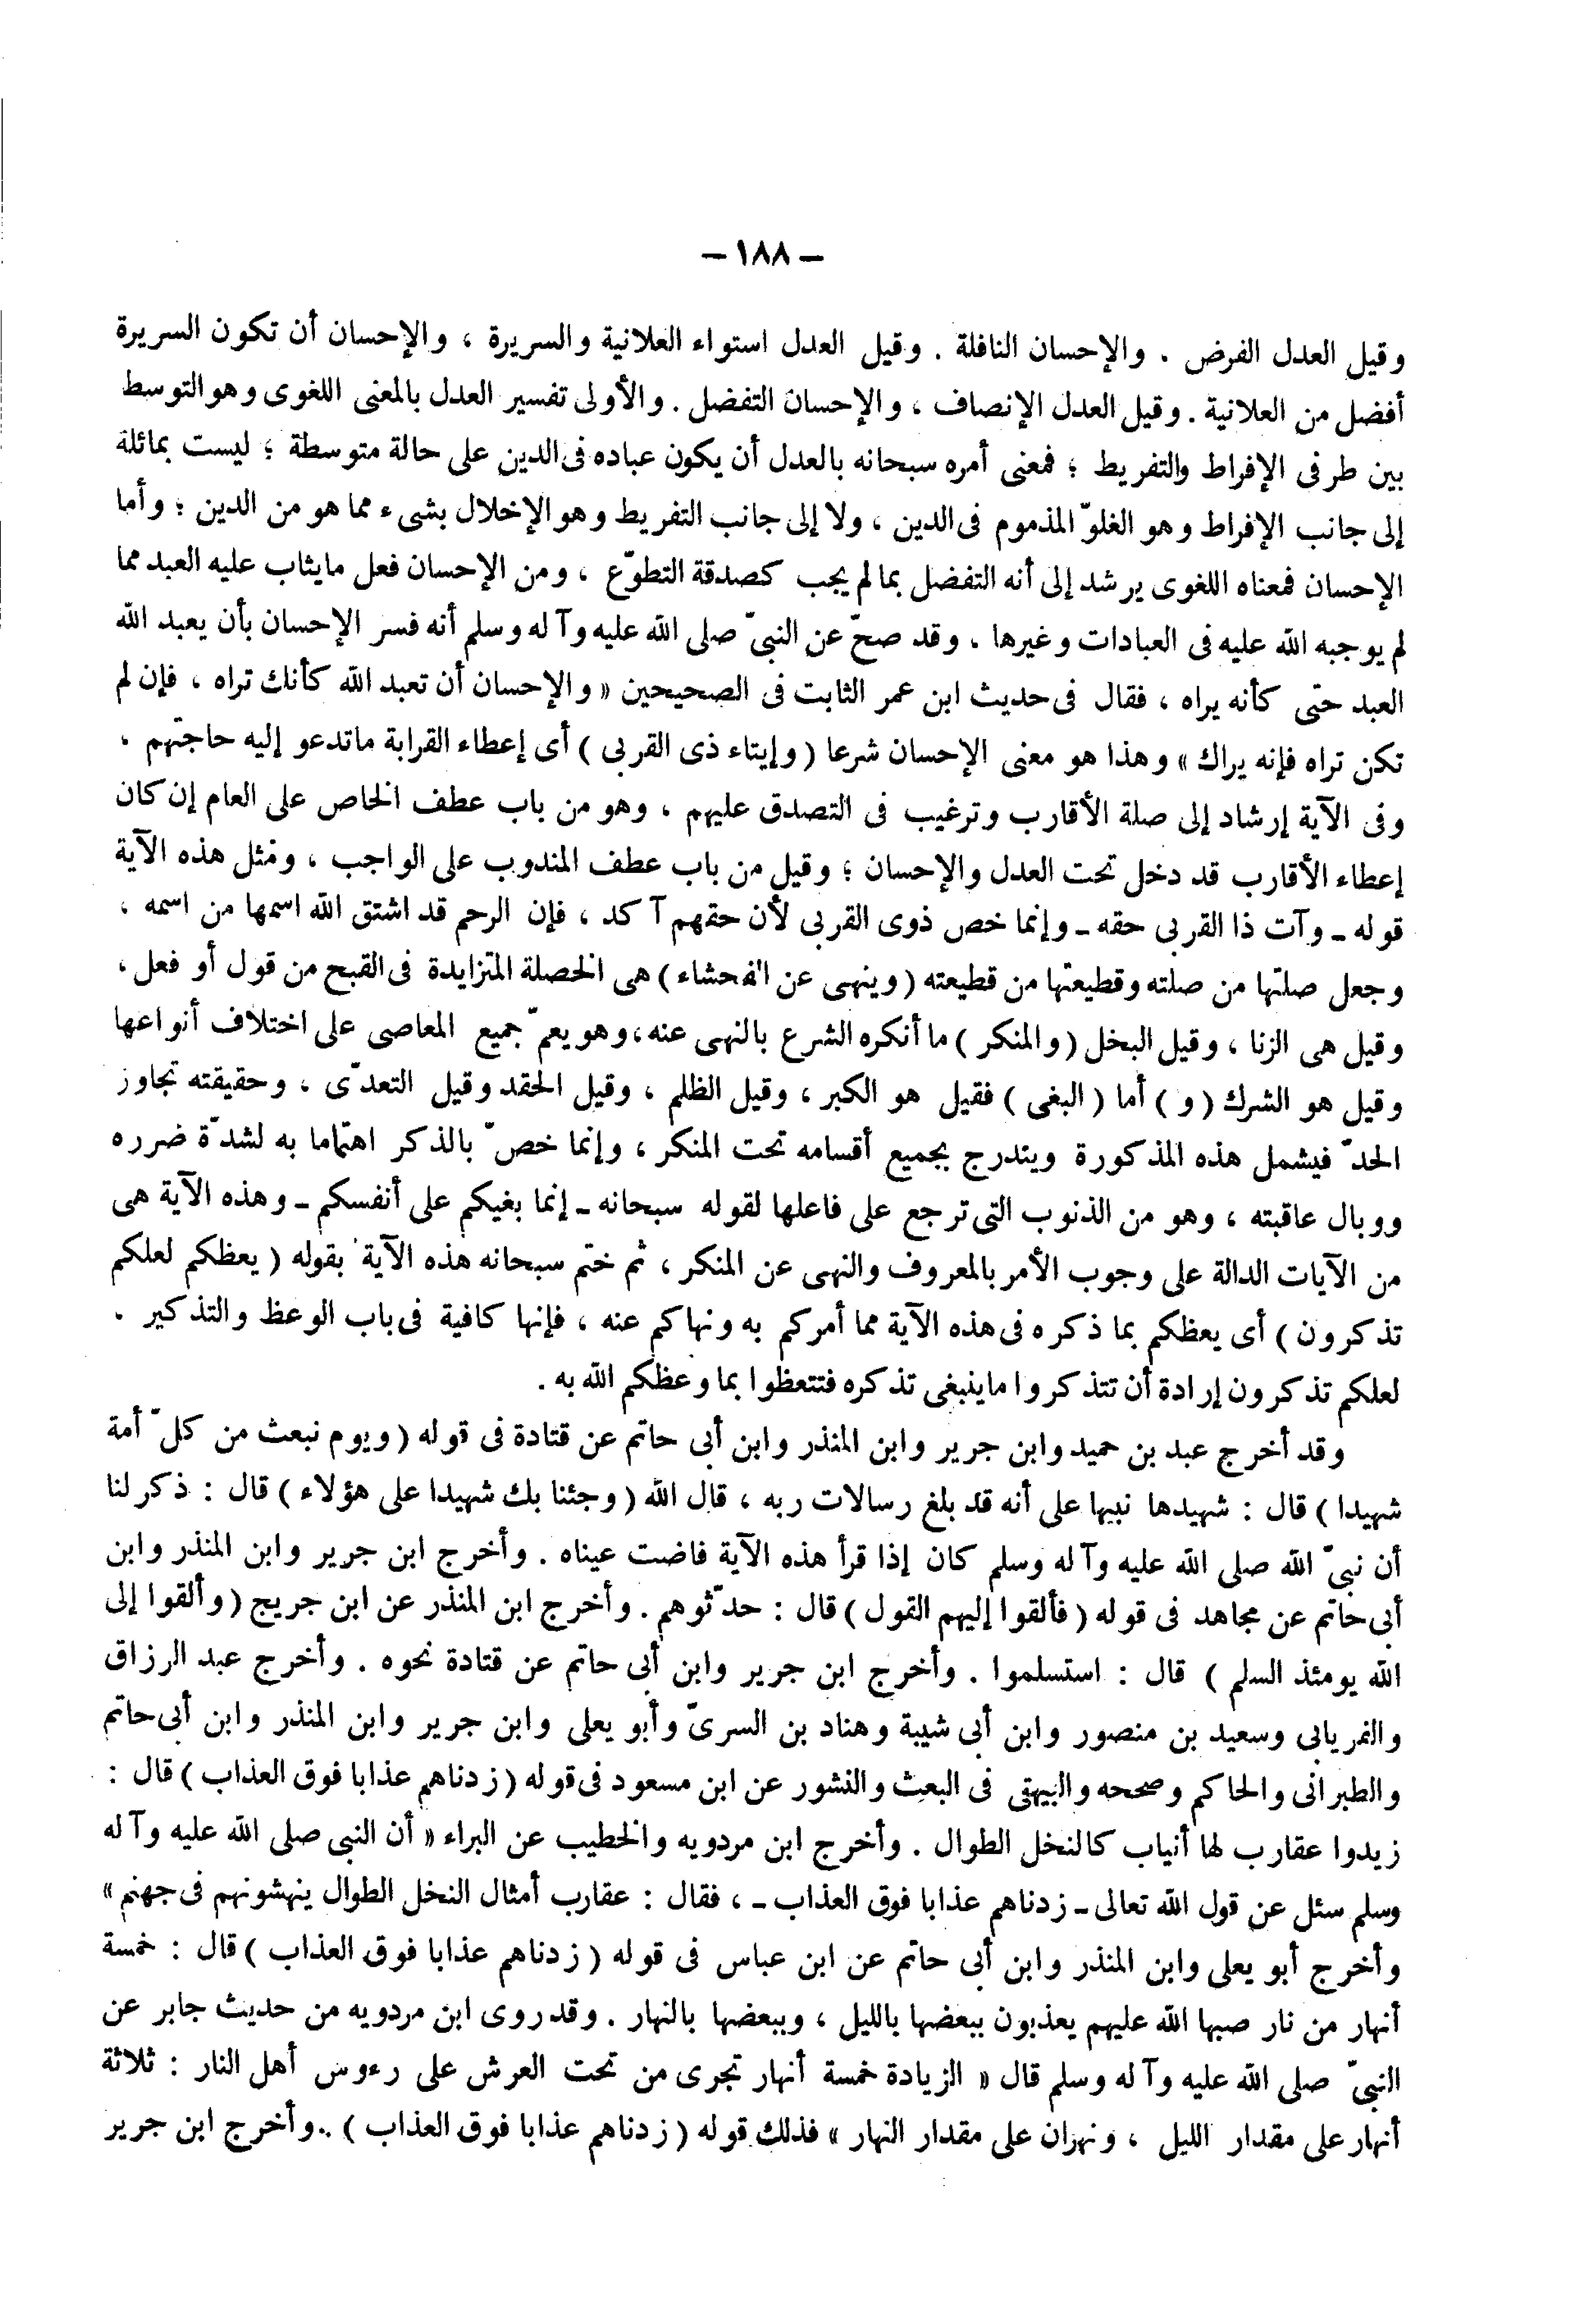 – ١٨٨ –
وقيل العدل الفرض . والإحسان النافلة . وقيل العدل استواء العلانية والسريرة ، والإحسان أن تكون السريرة
أفضل من العلانية . وقيل العدل الإنصاف ، والإحسان التفضل . والأولى تفسير العدل بالمعنى اللغوى وهو التوسط
بين طرفى الإفراط والتفريط ؛ فمعنى أمره سبحانه بالعدل أن يكون عباده فى الدين على حالة متوسطة ؛ ليست بمائلة
إلى جانب الإفراط وهو الغلوّ المذموم فى الدين ، ولا إلى جانب التفريط وهو الإخلال بشىء مما هو من الدين ؛ وأما
الإحسان فمعناه اللغوى يرشد إلى أنه التفضل بما لم يجب كصدقة التطوّع ، ومن الإحسان فعل مايثاب عليه العبد مما
لم يوجبه الله عليه فى العبادات وغيرها ، وقد صحّ عن النبىّ صلى الله عليه وآله وسلم أنه فسر الإحسان بأن يعبد الله
العبد حتى كأنه يراه ، فقال فى حديث ابن عمر الثابت فى الصحيحين « والإحسان أن تعبد الله كأنك تراه ، فإن لم
تكن تراه فإنه يراك » وهذا هو معنى الإحسان شرعا ( وإيتاء ذى القربى ) أى إعطاء القرابة ماتدعو إليه حاجتهم ،
وفى الآية إرشاد إلى صلة الأقارب وترغيب فى التصدق عليهم ، وهو من باب عطف الخاص على العام إن كان
إعطاء الأقارب قد دخل تحت العدل والإحسان ؛ وقيل من باب عطف المندوب على الواجب ، ومثل هذه الآية
قوله ـ وآت ذا القربى حقه ـ وإنما خص ذوى القربى لأن حقهم آكد ، فإن الرحم قد اشتق الله اسمها من اسمه ،
وجعل صلتها من صلته وقطيعتها من قطيعته ( وينهى عن الفحشاء ) هى الخصلة المتزايدة فى القبح من قول أو فعل ،
وقيل هى الزنا ، وقيل البخل ( والمنكر ) ما أنكره الشرع بالنهى عنه، وهو يعمّ جميع المعاصى على اختلاف أنواعها
وقيل هو الشرك ( و ) أما ( البغى ) فقيل هو الكبر ، وقيل الظلم ، وقيل الحقد وقيل التعدّى ، وحقيقته تجاوز
الحدّ فيشمل هذه المذكورة ويندرج بجميع أقسامه تحت المنكر ، وإنما خصّ بالذكر اهتماما به لشدّة ضرره
ووبال عاقبته ، وهو من الذنوب التى ترجع على فاعلها لقوله سبحانه ـ إنما بغيكم على أنفسكم ـ وهذه الآية هى
من الآيات الدالة على وجوب الأمر بالمعروف والنهى عن المنكر ، ثم ختم سبحانه هذه الآية بقوله ( يعظكم لعلكم
تذكرون ) أى يعظكم بما ذكره فى هذه الآية مما أمركم به ونهاكم عنه ، فإنها كافية فى باب الوعظ والتذكير .
لعلكم تذكرون إرادة أن تتذكروا ماينبغى تذكره فتتعظوا بما وعظكم الله به .
وقد أخرج عبد بن حميد وابن جرير وابن المنذر وابن أبى حاتم عن قتادة فى قوله ( ويوم نبعث من كلّ أمة
شهيدا ) قال : شهيدها نبيها على أنه قد بلغ رسالات ربه ، قال الله ( وجئنا بك شهيدا على هؤلاء ) قال : ذكر لنا
أن نبىّ الله صلى الله عليه وآله وسلم كان إذا قرأ هذه الآية فاضت عيناه . وأخرج ابن جرير وابن المنذر وابن
أبى حاتم عن مجاهد فى قوله ( فألقوا إليهم القول ) قال : حدّثوهم . وأخرج ابن المنذر عن ابن جريج ( وألقوا إلى
الله يومئذ السلم ) قال : استسلموا . وأخرج ابن جرير وابن أبى حاتم عن قتادة نحوه . وأخرج عبد الرزاق
والفريابى وسعيد بن منصور وابن أبى شيبة وهناد بن السرىّ وأبو يعلى وابن جرير وابن المنذر وابن أبى حاتم
والطبرانى والحاكم وصححه والبيهقى فى البعث والنشور عن ابن مسعود فى قوله ( زدناهم عذابا فوق العذاب ) قال :
زيدوا عقارب لها أنياب كالنخل الطوال . وأخرج ابن مردويه والخطيب عن البراء « أن النبى صلى الله عليه وآله
وسلم سئل عن قول الله تعالى ـ زدناهم عذابا فوق العذاب ـ ، فقال : عقارب أمثال النخل الطوال ينهشونهم فى جهنم »
وأخرج أبو يعلى وابن المنذر وابن أبى حاتم عن ابن عباس فى قوله ( زدناهم عذابا فوق العذاب ) قال : خمسة
أنهار من نار صبها الله عليهم يعذبون ببعضها بالليل ، وببعضها بالنهار . وقد روى ابن مردويه من حديث جابر عن
النبىّ صلى الله عليه وآله وسلم قال « الزيادة خمسة أنهار تجرى من تحت العرش على رءوس أهل النار : ثلاثة
أنهار على مقدار الليل ، ونهران على مقدار النهار » فذلك قوله ( زدناهم عذابا فوق العذاب ) . وأخرج ابن جرير